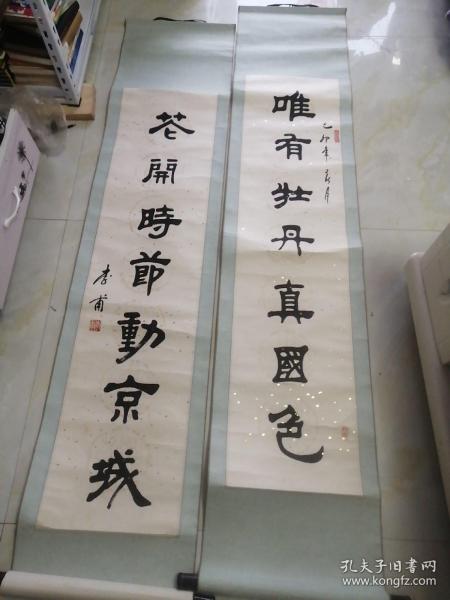 唯有牡丹真國色
己卯年春月
花開時節動京城
李甫
孔夫子旧书网
www.kongfz.com